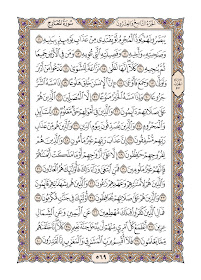 الجزء التاسع والعشرون سورة المعارج
يُبَصَّرُونَهُمْ يَوَدُّ الْمُجْرِمُ لَوْ يَفْتَدِي مِنْ عَذَابِ يَوْمِئِذٍ بِبَنِيهِ ١١
وَصَاحِبَتِهِ وَأَخِيهِ ١٢ وَفَصِيلَتِهِ الَّتِي تُؤْوِيهِ ١٣ وَمَن فِي الْأَرْضِ جَمِيعًا
ثُمَّ يُنجِيهِ ١٤ كَلَّا إِنَّهَا لَظَىٰ ١٥ نَزَّاعَةً لِّلشَّوَىٰ ١٦ تَدْعُو مَنْ أَدْبَرَ
وَتَوَلَّىٰ ١٧ وَجَمَعَ فَأَوْعَىٰ ١٨ إِنَّ الْإِنسَانَ خُلِقَ هَلُوعًا ١٩ إِذَا مَسَّهُ
الشَّرُّ جَزُوعًا ٢٠ وَإِذَا مَسَّهُ الْخَيْرُ مَنُوعًا ٢١ إِلَّا الْمُصَلِّينَ ٢٢ الَّذِينَ هُمْ
عَلَىٰ صَلَاتِهِمْ دَائِمُونَ ٢٣ وَالَّذِينَ فِي أَمْوَالِهِمْ حَقٌّ مَّعْلُومٌ ٢٤ لِّلسَّائِلِ
وَالْمَحْرُومِ ٢٥ وَالَّذِينَ يُصَدِّقُونَ بِيَوْمِ الدِّينِ ٢٦ وَالَّذِينَ هُم مِّنْ عَذَابِ
رَبِّهِم مُّشْفِقُونَ ٢٧ إِنَّ عَذَابَ رَبِّهِمْ غَيْرُ مَأْمُونٍ ٢٨ وَالَّذِينَ هُمْ
لِفُرُوجِهِمْ حَافِظُونَ ٢٩ إِلَّا عَلَىٰ أَزْوَاجِهِمْ أَوْ مَا مَلَكَتْ أَيْمَانُهُمْ
فَإِنَّهُمْ غَيْرُ مَلُومِينَ ٣٠ فَمَنِ ابْتَغَىٰ وَرَاءَ ذَٰلِكَ فَأُولَٰئِكَ هُمُ الْعَادُونَ ٣١
وَالَّذِينَ هُمْ لِأَمَانَاتِهِمْ وَعَهْدِهِمْ رَاعُونَ ٣٢ وَالَّذِينَ هُم بِشَهَادَاتِهِمْ قَائِمُونَ ٣٣
وَالَّذِينَ هُمْ عَلَىٰ صَلَاتِهِمْ يُحَافِظُونَ ٣٤ أُولَٰئِكَ فِي جَنَّاتٍ مُّكْرَمُونَ ٣٥
فَمَالِ الَّذِينَ كَفَرُوا قِبَلَكَ مُهْطِعِينَ ٣٦ عَنِ الْيَمِينِ وَعَنِ الشِّمَالِ
عِزِينَ ٣٧ أَيَطْمَعُ كُلُّ امْرِئٍ مِّنْهُمْ أَن يُدْخَلَ جَنَّةَ نَعِيمٍ ٣٨ كَلَّا إِنَّا خَلَقْنَاهُم
مِّمَّا يَعْلَمُونَ ٣٩ فَلَا أُقْسِمُ بِرَبِّ الْمَشَارِقِ وَالْمَغَارِبِ إِنَّا لَقَادِرُونَ ٤٠
٥٦٩